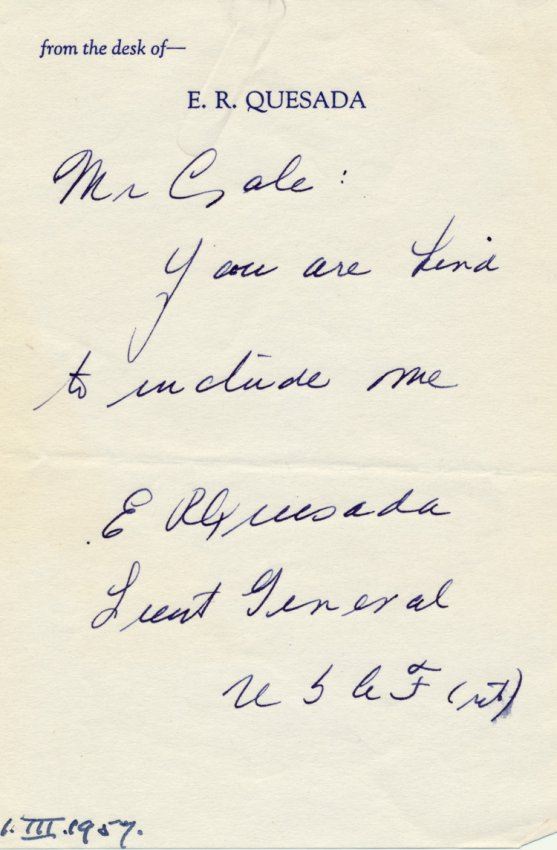 from the desk of—
E. R. QUESADA
Mr Gale:
You are kind
to include me
E R Quesada
Lieut General
U S A F (ret)
1. III. 1957.